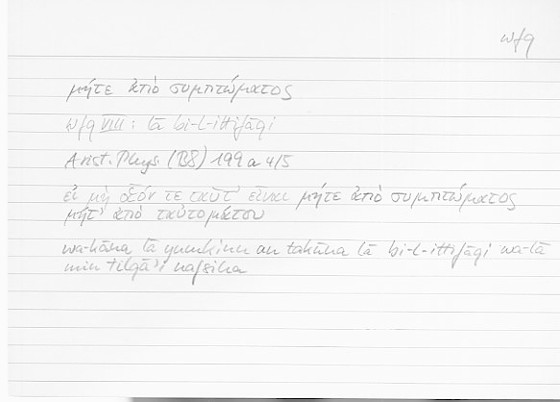 wfq
μήτε ἀπὸ συμπτώματος
wfq VIII: lā bi-l-ittifāqi
Arist. Phys. (B8) 199 a 4/5
εἰ μὴ οἷόν τε ταῦτ' εἶναι μήτε ἀπὸ συμπτώματος
μήτ' ἀπὸ ταὐτομάτου
wa-kāna lā yumkinu an takūna lā bi-l-ittifāqi wa-lā
min tilqāʾi nafsiha